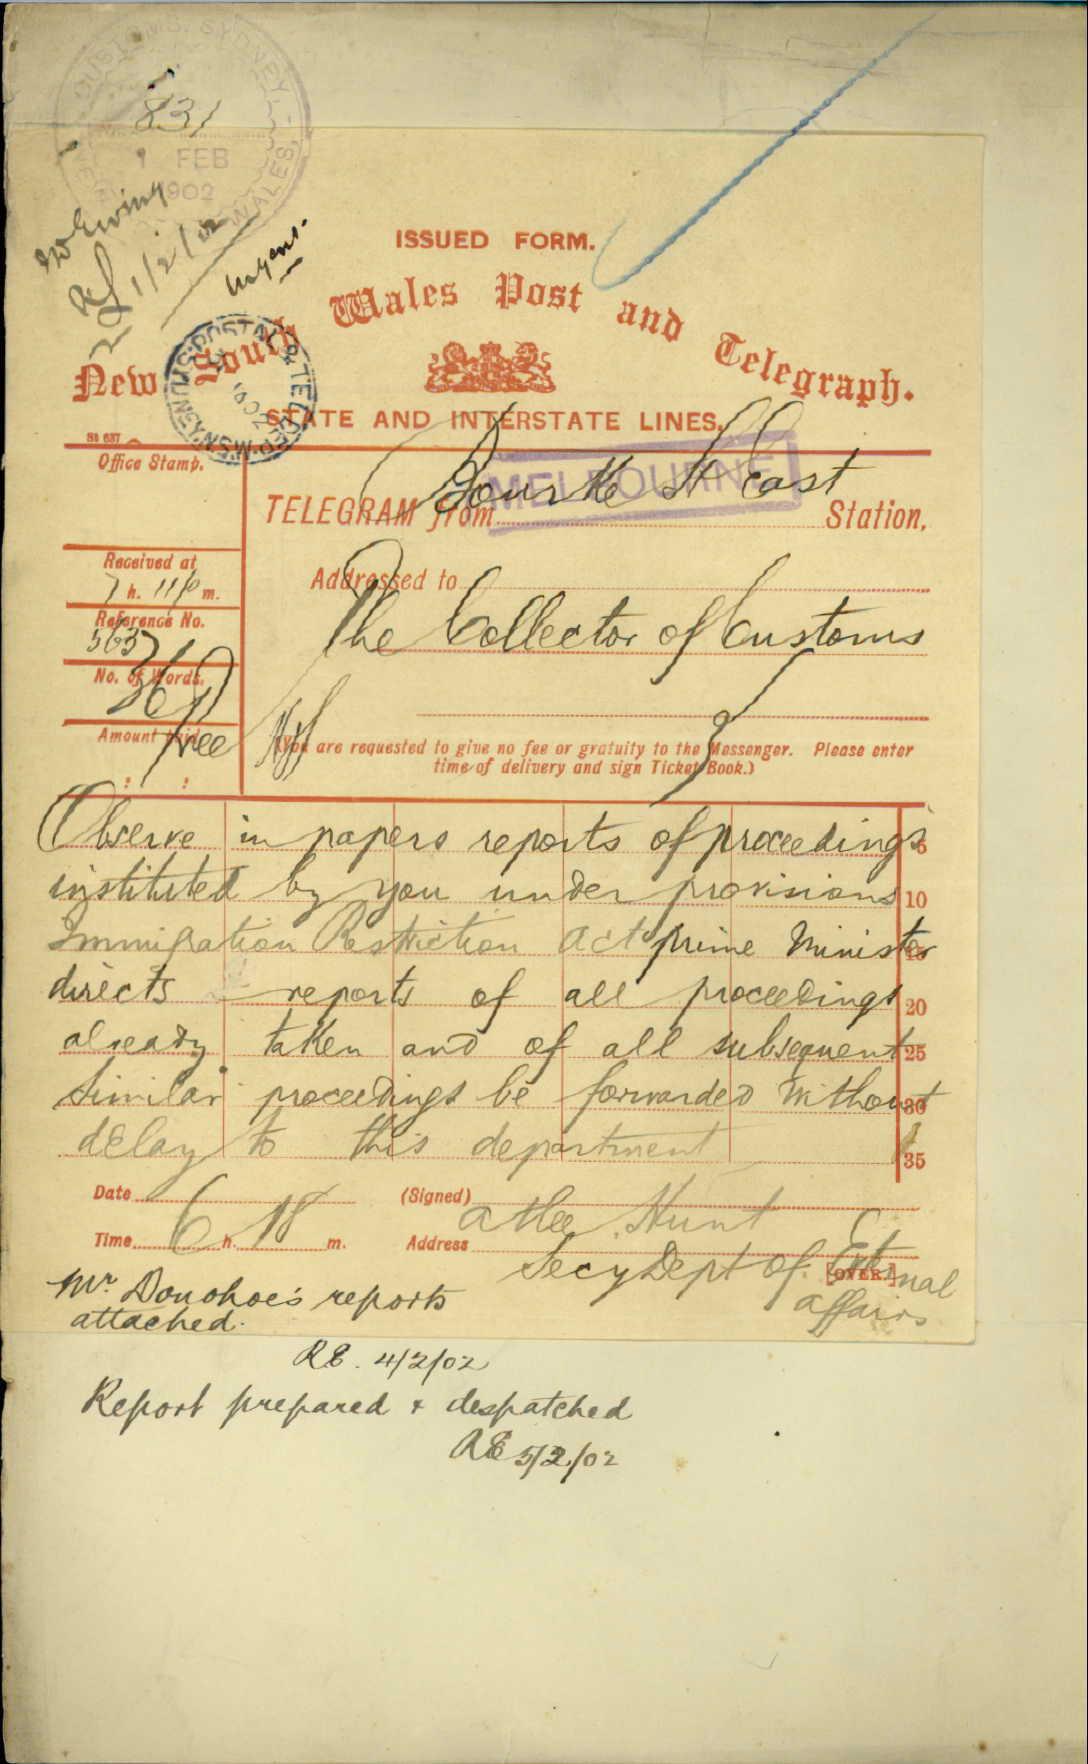 CUSTOMS, SYDNEY,
831
1 FEB
1902
NEW SOUTH WALES,
1/2/02
Urgent.
ISSUED FORM.
New South Wales Post and Telegraph.
STATE AND INTERSTATE LINES.
Office Stamp.
MELBOURNE
TELEGRAM from Bourke St East Station.
Received at
7 h. 11 p m.
Addressed to
Reference No.
563
The Collector of Customs
No. of Words.
36
Amount paid
Free
(You are requested to give no fee or gratuity to the Messenger. Please enter
time of delivery and sign Ticket Book.)
Observe in papers reports of proceedings 5
instituted by you under provisions 10
Immigration Restriction Act prime Minister 15
directs reports of all proceedings 20
already taken and of all subsequent 25
similar proceedings be forwarded without 30
delay to this department 35
Date
(Signed) Atlee Hunt
Time 6 h. 18 m.
Address Secy Dept of External
[OVER.]
affairs
Mr Donohoe's reports
attached.
RE. 4/2/02
Report prepared & despatched
RE 5/2/02